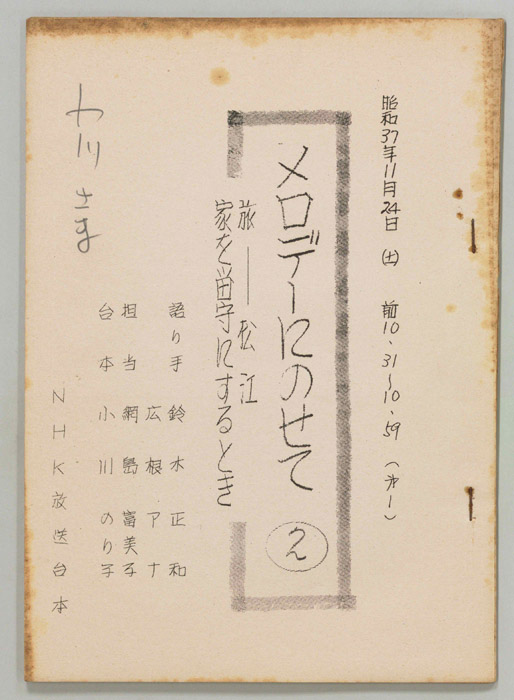 昭和37年11月24日(土) 前10.31~10.59(オ一)
メロデーにのせて
旅――松江
家を留守にするとき
語り手 鈴木正和
広根アナ
担当 網島富美子
台本 小川のり子
NHK放送台本
川さま